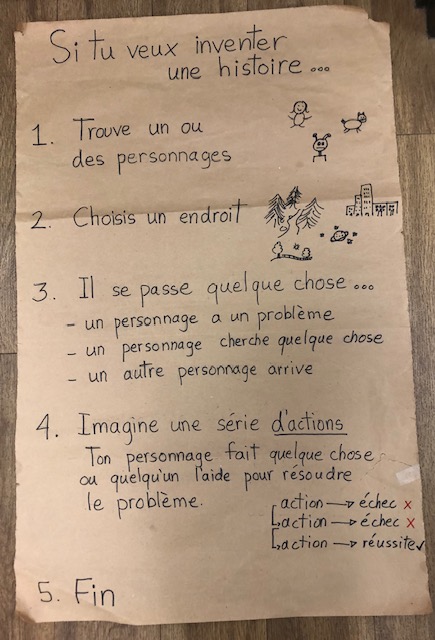 Si tu veux inventer
une histoire...
1. Trouve un ou
des personnages
2. Choisis un endroit
3. Il se passe quelque chose...
- un personnage a un problème
- un personnage cherche quelque chose
- un autre personnage arrive
4. Imagine une série d'actions
Ton personnage fait quelque chose
ou quelqu'un l'aide pour résoudre
le problème.
action → échec x
action → échec x
action → réussite ✓
5. Fin